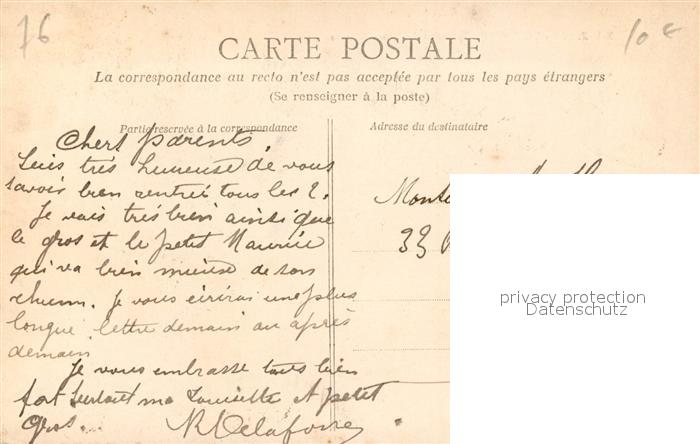 76
10 €
CARTE POSTALE
La correspondance au recto n'est pas acceptée par tous les pays étrangers
(Se renseigner à la poste)
Partie réservée à la correspondance
Adresse du destinataire
Chers parents,
Suis très heureuse de vous
savoir bien rentrée tous les 2.
Je vais très bien ainsi que
le gros et le petit Maurice
qui va bien mieux de son
rhum. Je vous écrirai une plus
longue lettre demain au après
demain
Je vous embrasse tous bien
fort surtout ma et petit
gros.
33
privacy protection
Datenschutz